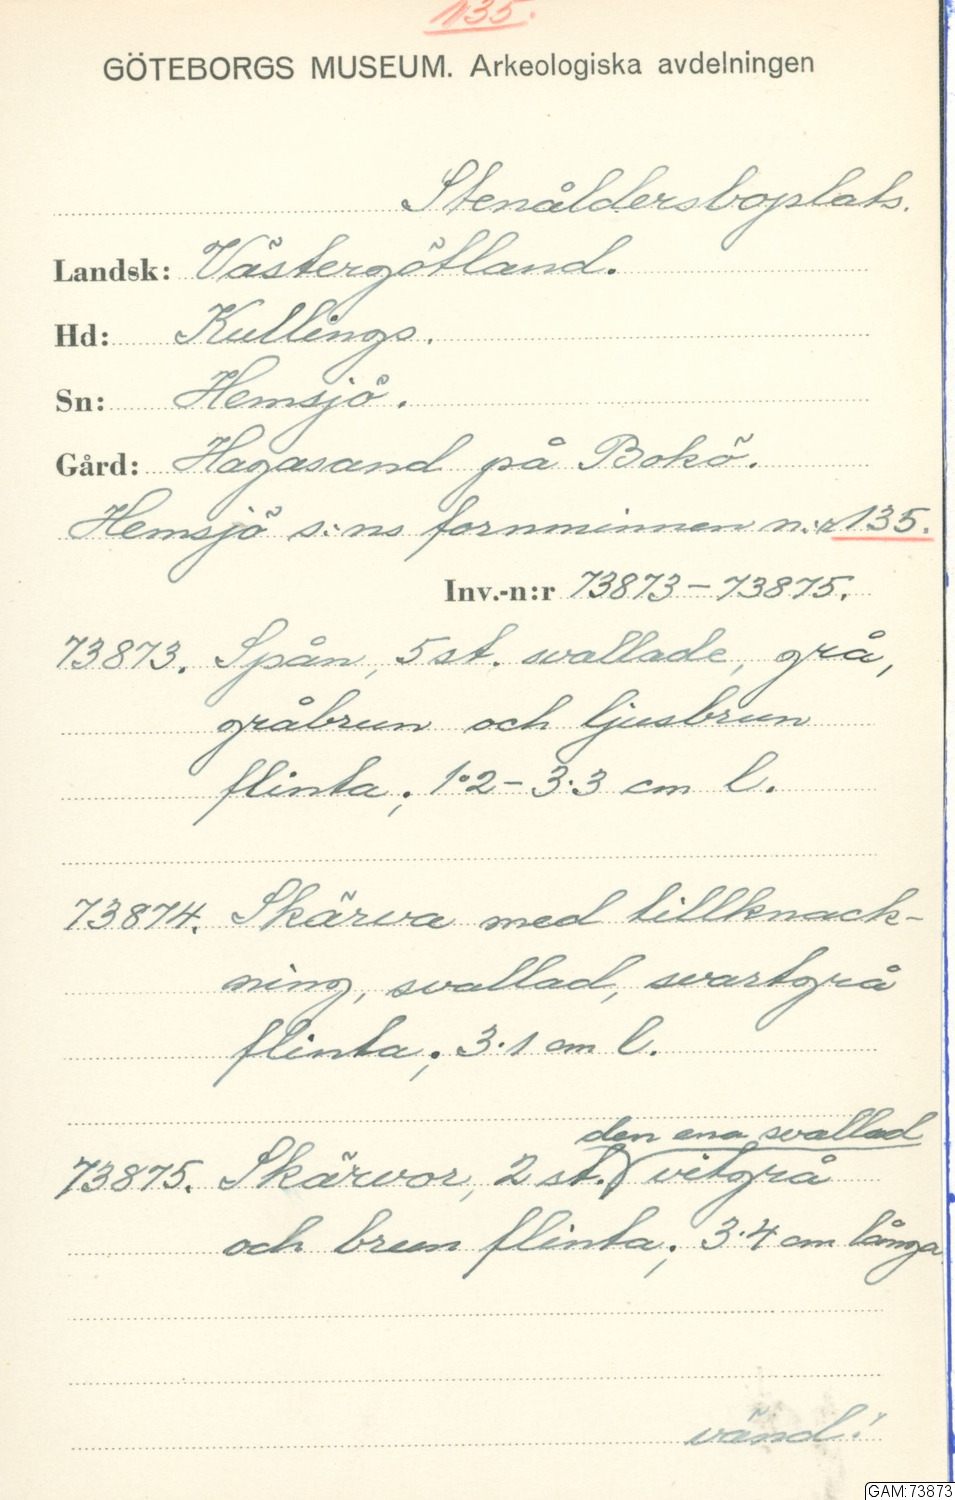 135.
GÖTEBORGS MUSEUM. Arkeologiska avdelningen
Stenåldersboplats.
Landsk: Västergötland.
Hd: Kullings.
Sn: Hemsjö.
Gård: Hagasand på Bokö.
Hemsjö s:ns fornminnen n:r 135.
Inv.-n:r 73873-73875.
73873. Spån, 5 st. svallade, grå,
gråbrun och ljusbrun
flinta; 1.2-3.3 cm l.
73874. Skärva med tillknack-
ning, svallad, svartgrå
flinta; 3.1 cm l.
den ena svallad
73875. Skärvor, 2 st. vitgrå
och brun flinta; 3.4 cm långa.
vänd!
GAM:73873